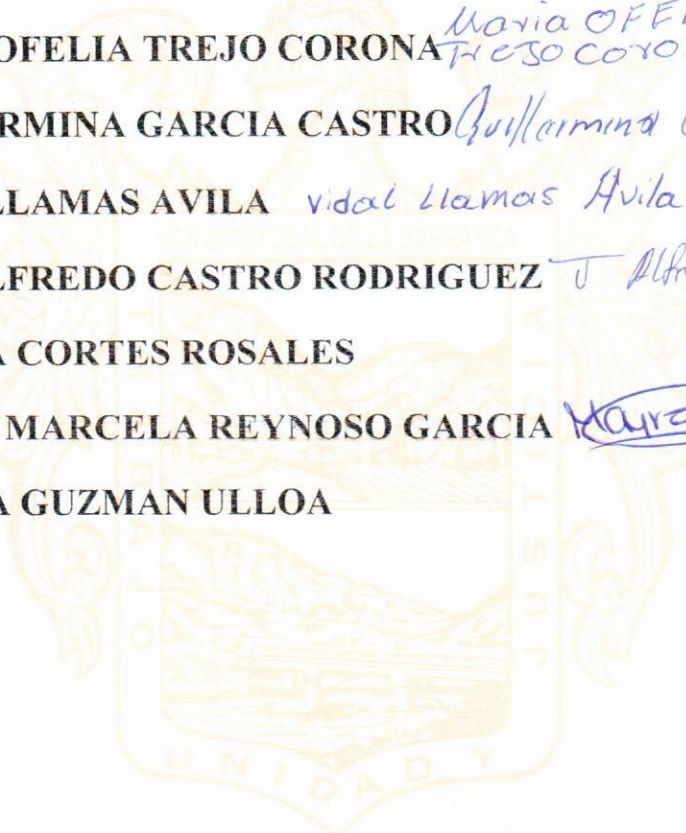 OFELIA TREJO CORONA Maria OFE
Trejo Coro
RMINA GARCIA CASTRO Guillermina
LLAMAS AVILA vidal Llamas Avila
LFREDO CASTRO RODRIGUEZ J Alfr
A CORTES ROSALES
MARCELA REYNOSO GARCIA Mayra
A GUZMAN ULLOA
TRABAJO
JUSTICIA
UNIDAD Y